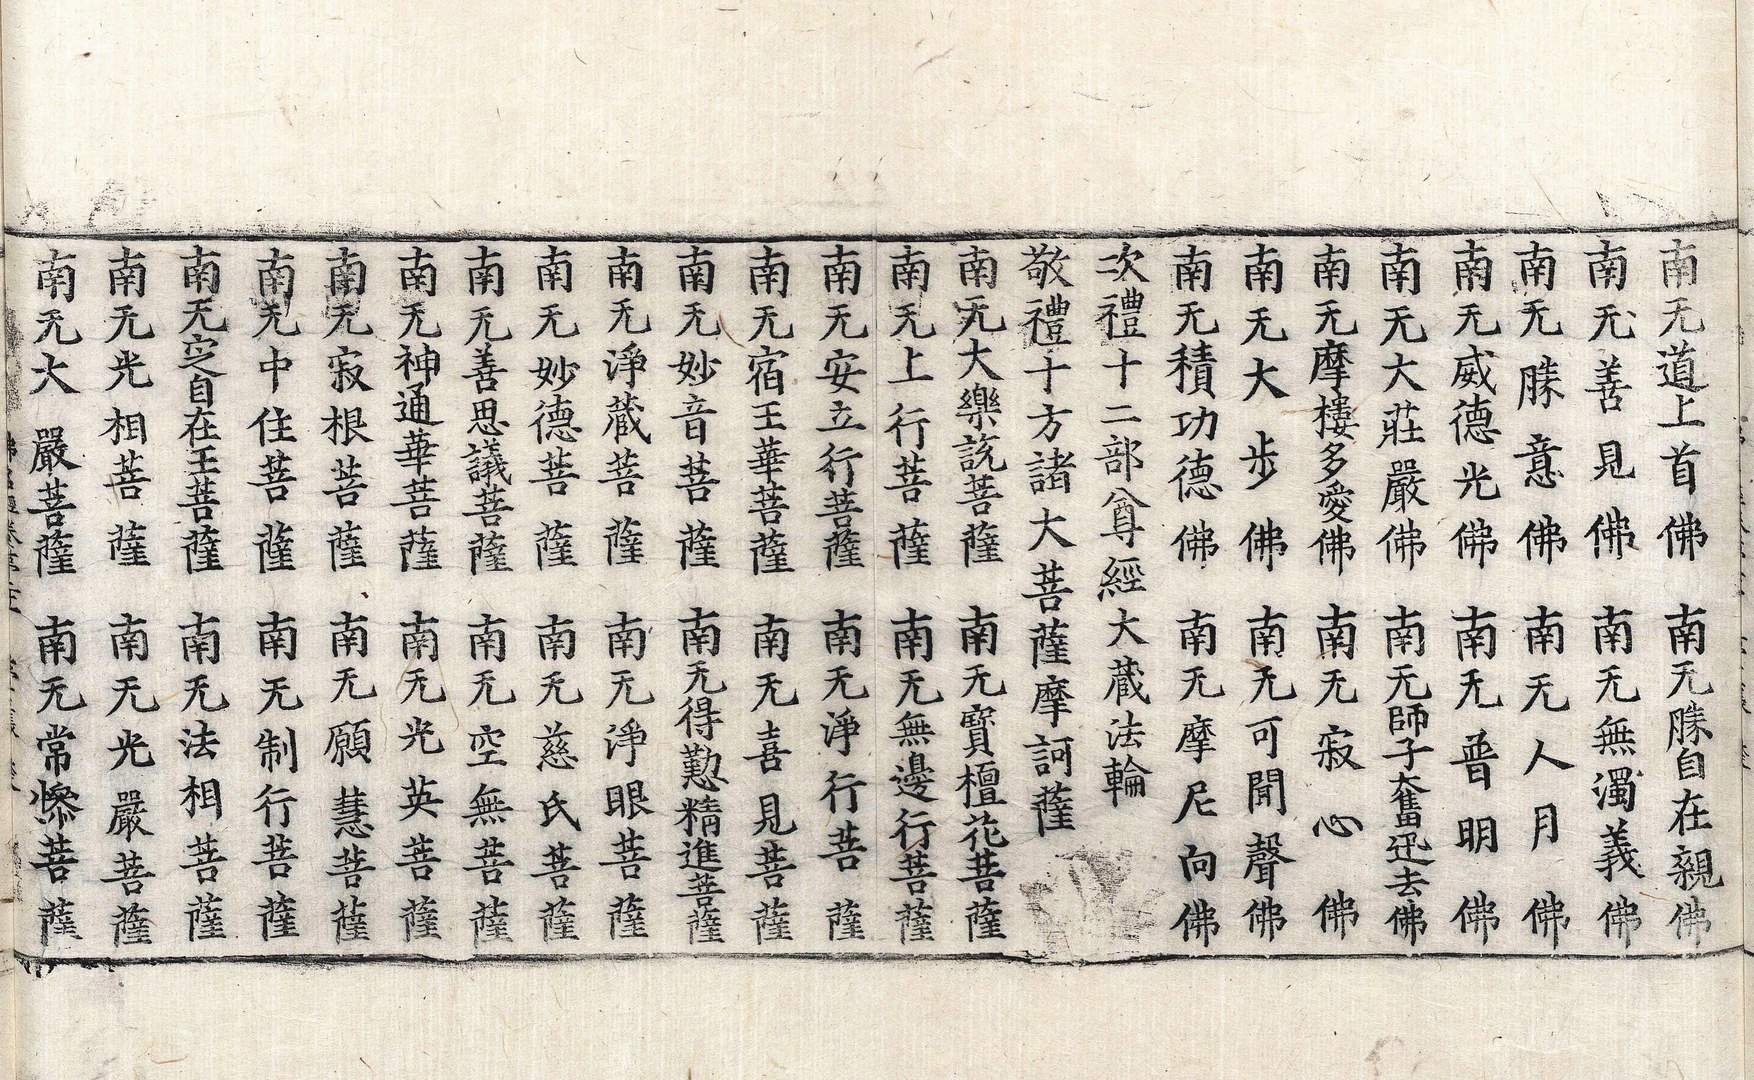 南无道上首佛 南无勝自在親佛
南无善見佛 南无無濁義佛
南无勝意佛 南无人月佛
南无威德光佛 南无普明佛
南无大莊嚴佛 南无師子奮迅去佛
南无摩樓多愛佛 南无寂心佛
南无大步佛 南无可聞聲佛
南无積功德佛 南无摩尼向佛
次禮十二部尊經大藏法輪
敬禮十方諸大菩薩摩訶薩
南无大樂説菩薩 南无寳檀花菩薩
南无上行菩薩 南无無邊行菩薩
南无安立行菩薩 南无淨行菩薩
南无宿王華菩薩 南无喜見菩薩
南无妙音菩薩 南无得懃精進菩薩
南无淨藏菩薩 南无淨眼菩薩
南无妙德菩薩 南无慈氏菩薩
南无善思議菩薩 南无空無菩薩
南无神通華菩薩 南无光英菩薩
南无寂根菩薩 南无願慧菩薩
南无中住菩薩 南无制行菩薩
南无定自在王菩薩 南无法相菩薩
南无光相菩薩 南无光嚴菩薩
南无大嚴菩薩 南无常慘菩薩